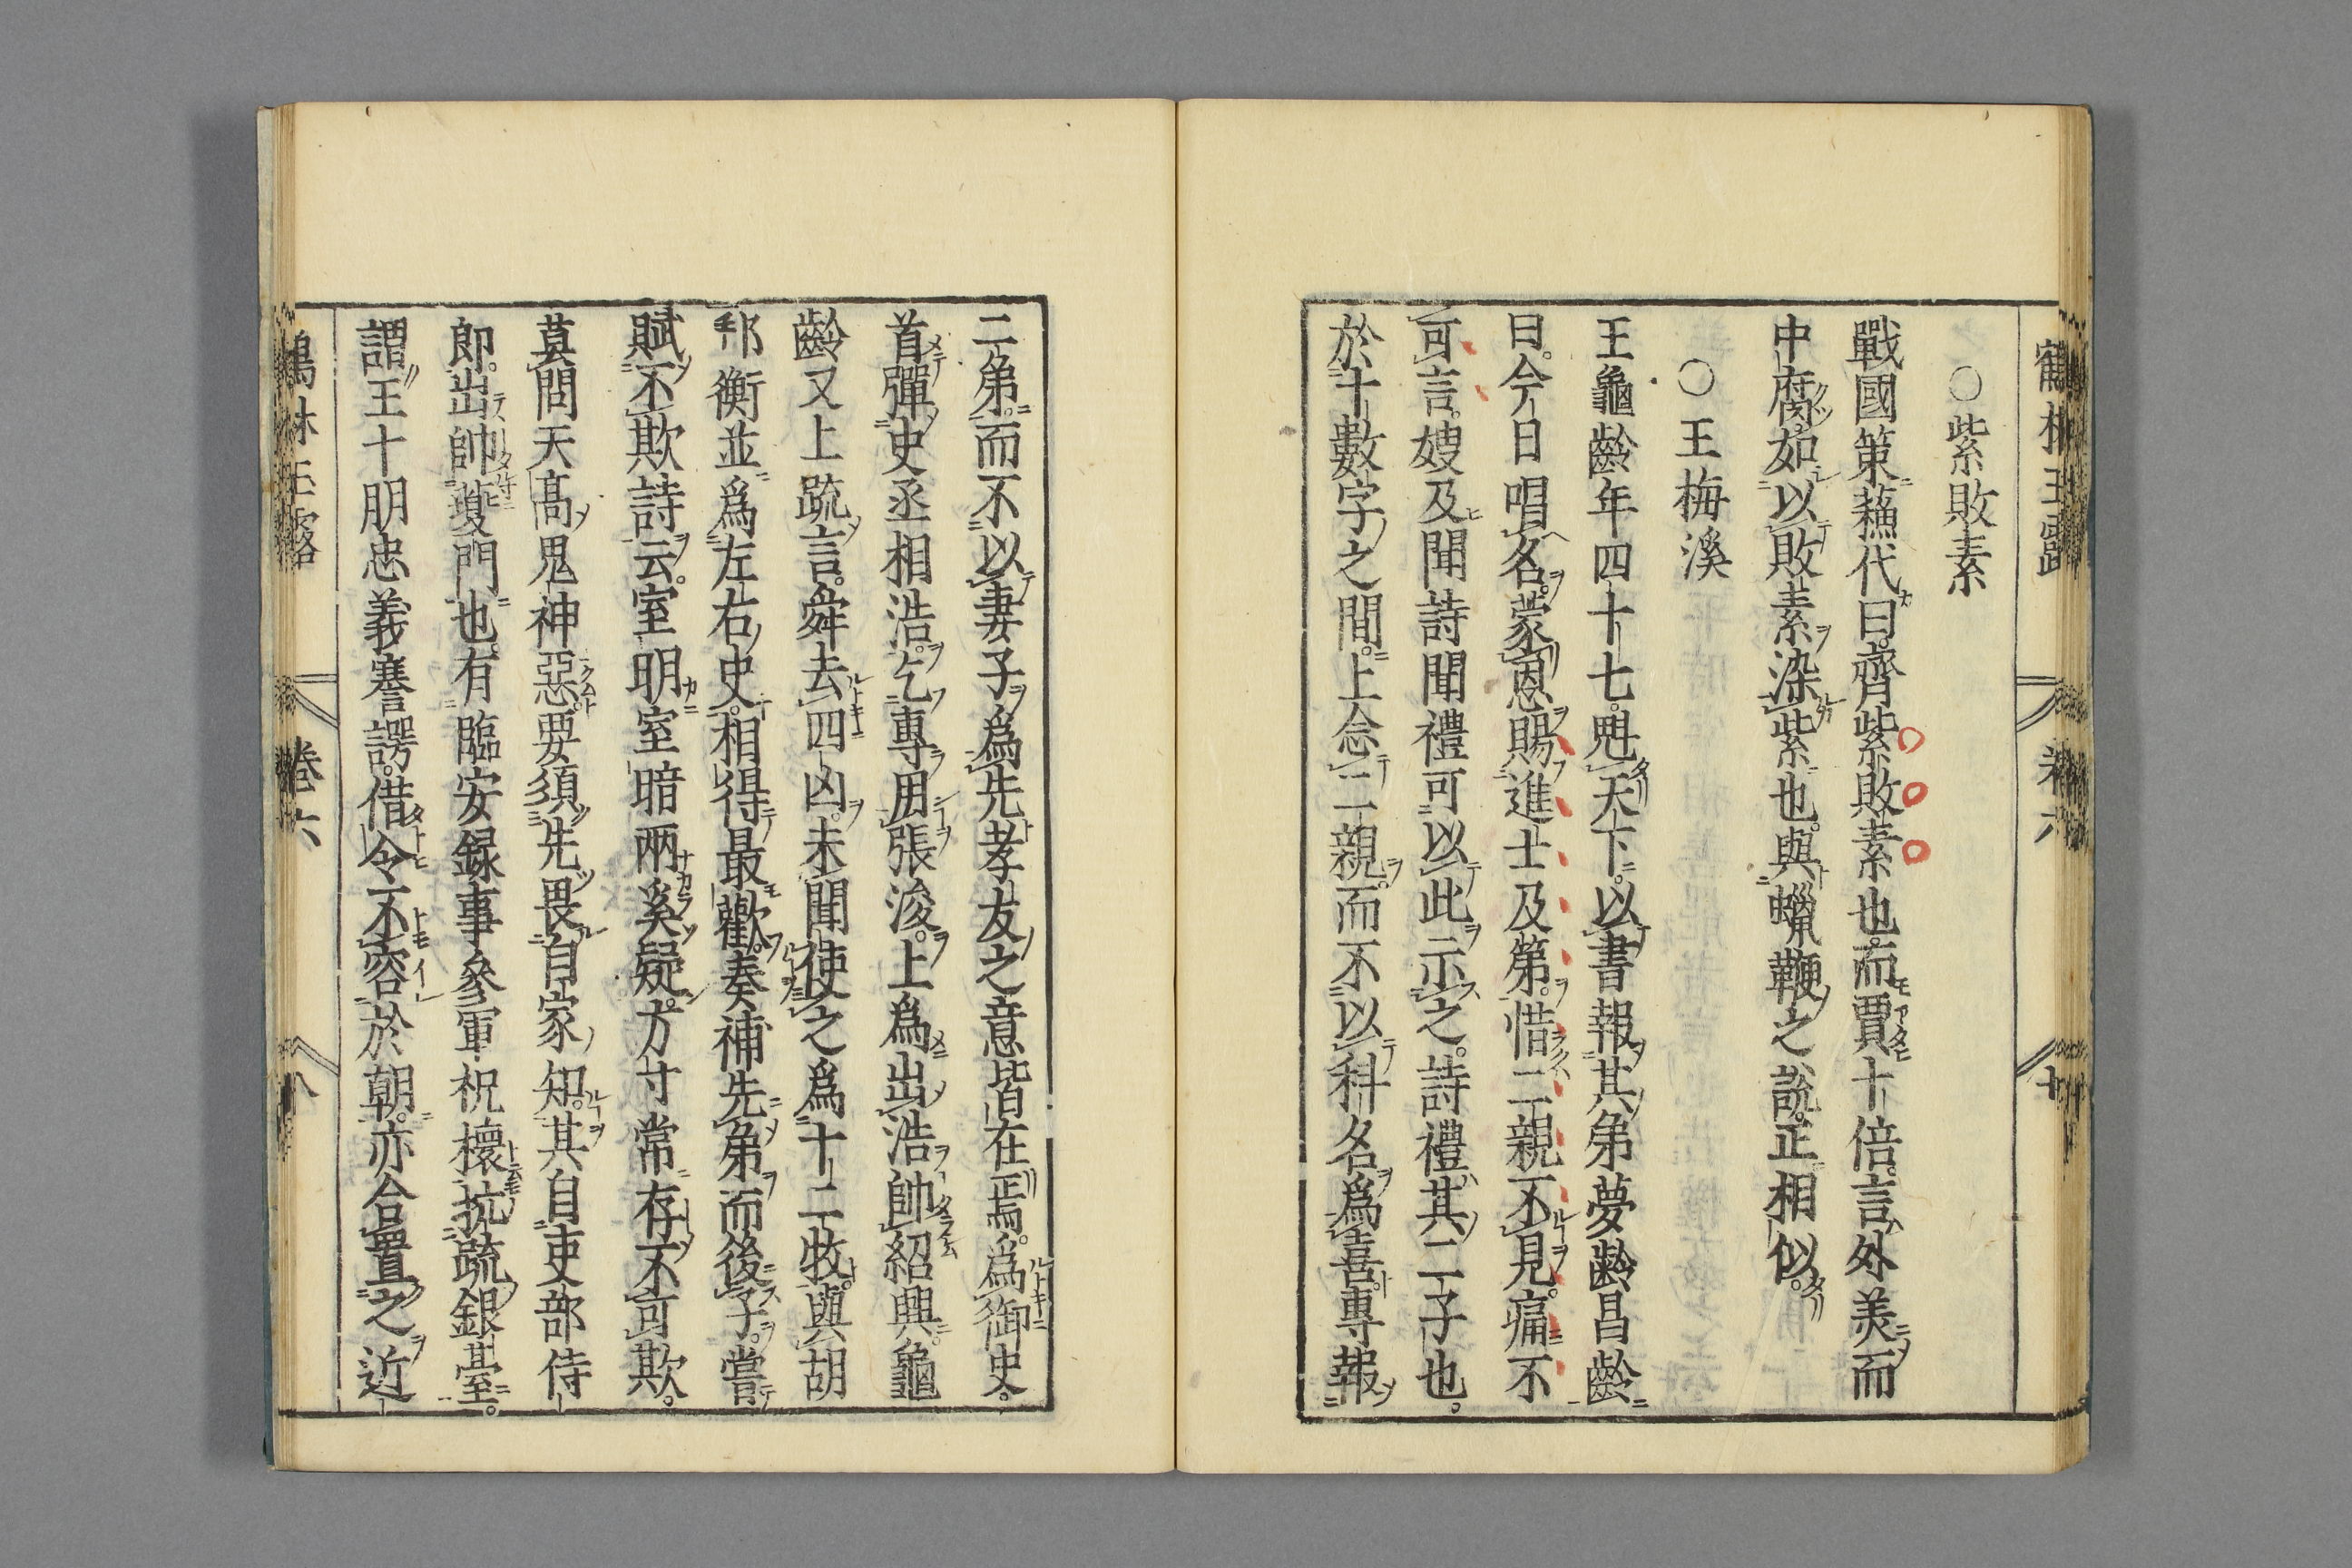 鶴林玉露 卷六
○紫敗素
戰國策蘓代曰齊紫敗素也而賈十倍言外美而
中腐如以敗素染紫也與蠟鞭之說正相似
○王梅溪
王龜齡年四十七魁天下以書報其弟夢齡昌齡
曰今日唱名蒙恩賜進士及第惜二親不見痛不
可言嫂及聞詩聞禮可以此示之詩禮其二子也
於十數字之間上念二親而不以科名爲喜專報
二弟而不以妻子爲先孝友之意皆在焉爲御史
首彈史丞相浩乞專用張浚上爲出浩帥紹興龜
齡又上疏言舜去四凶未聞使之爲十二牧與胡
邦衡並爲左右史相得最歡奏補先弟而後子嘗
賦不欺詩云室明室暗兩奚疑方寸常存不可欺
莫問天高鬼神惡要須先畏自家知其自吏部侍
郎出帥夔門也有臨安録事參軍祝櫰抗疏銀臺
謂王十朋忠義謇諤借令不容於朝亦合置之近
鶴林玉露 卷六 八